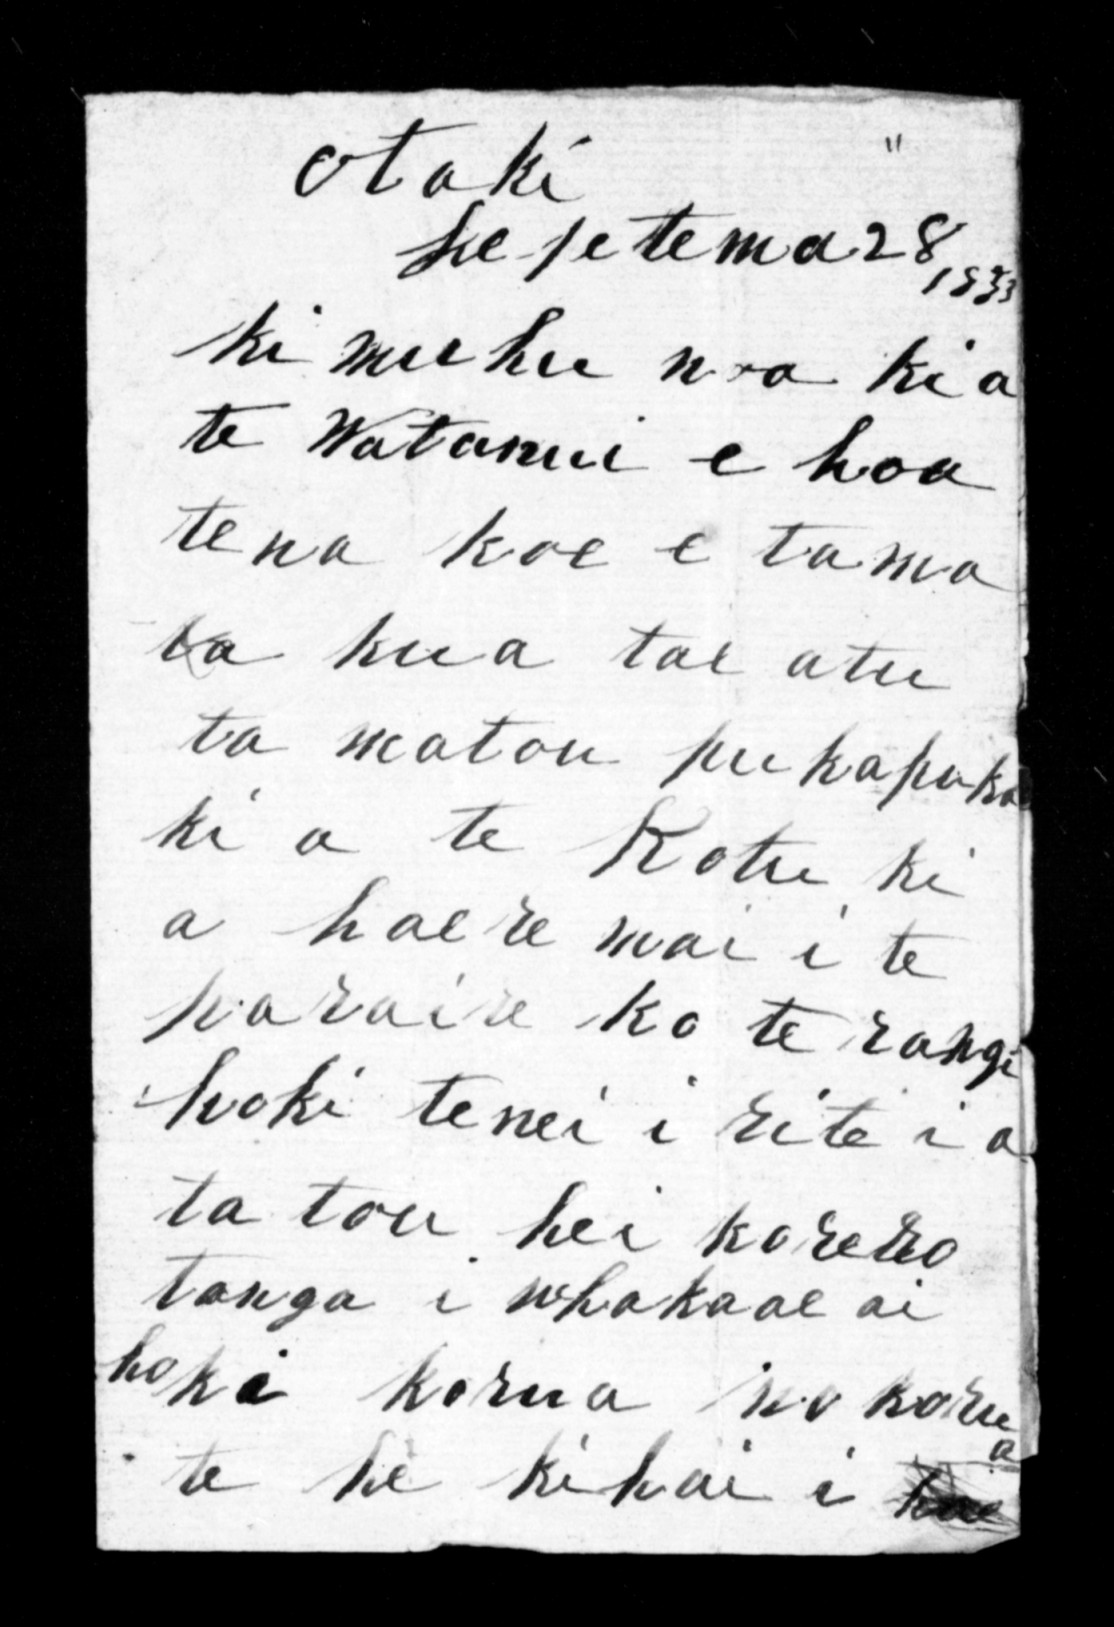 Otaki
Hepetema 28
ki muhu noa kia
te Watanui e hoa
tena koe e tama
ta kua tae atu
ta matou pukapuka
ki a te Kotu ki
a haere mai i te
paraire ko te rangi
hoki tenei i rite i a
ta tou hei korero
tanga i whakaae ai
hoki korua no korua
te he kihai i